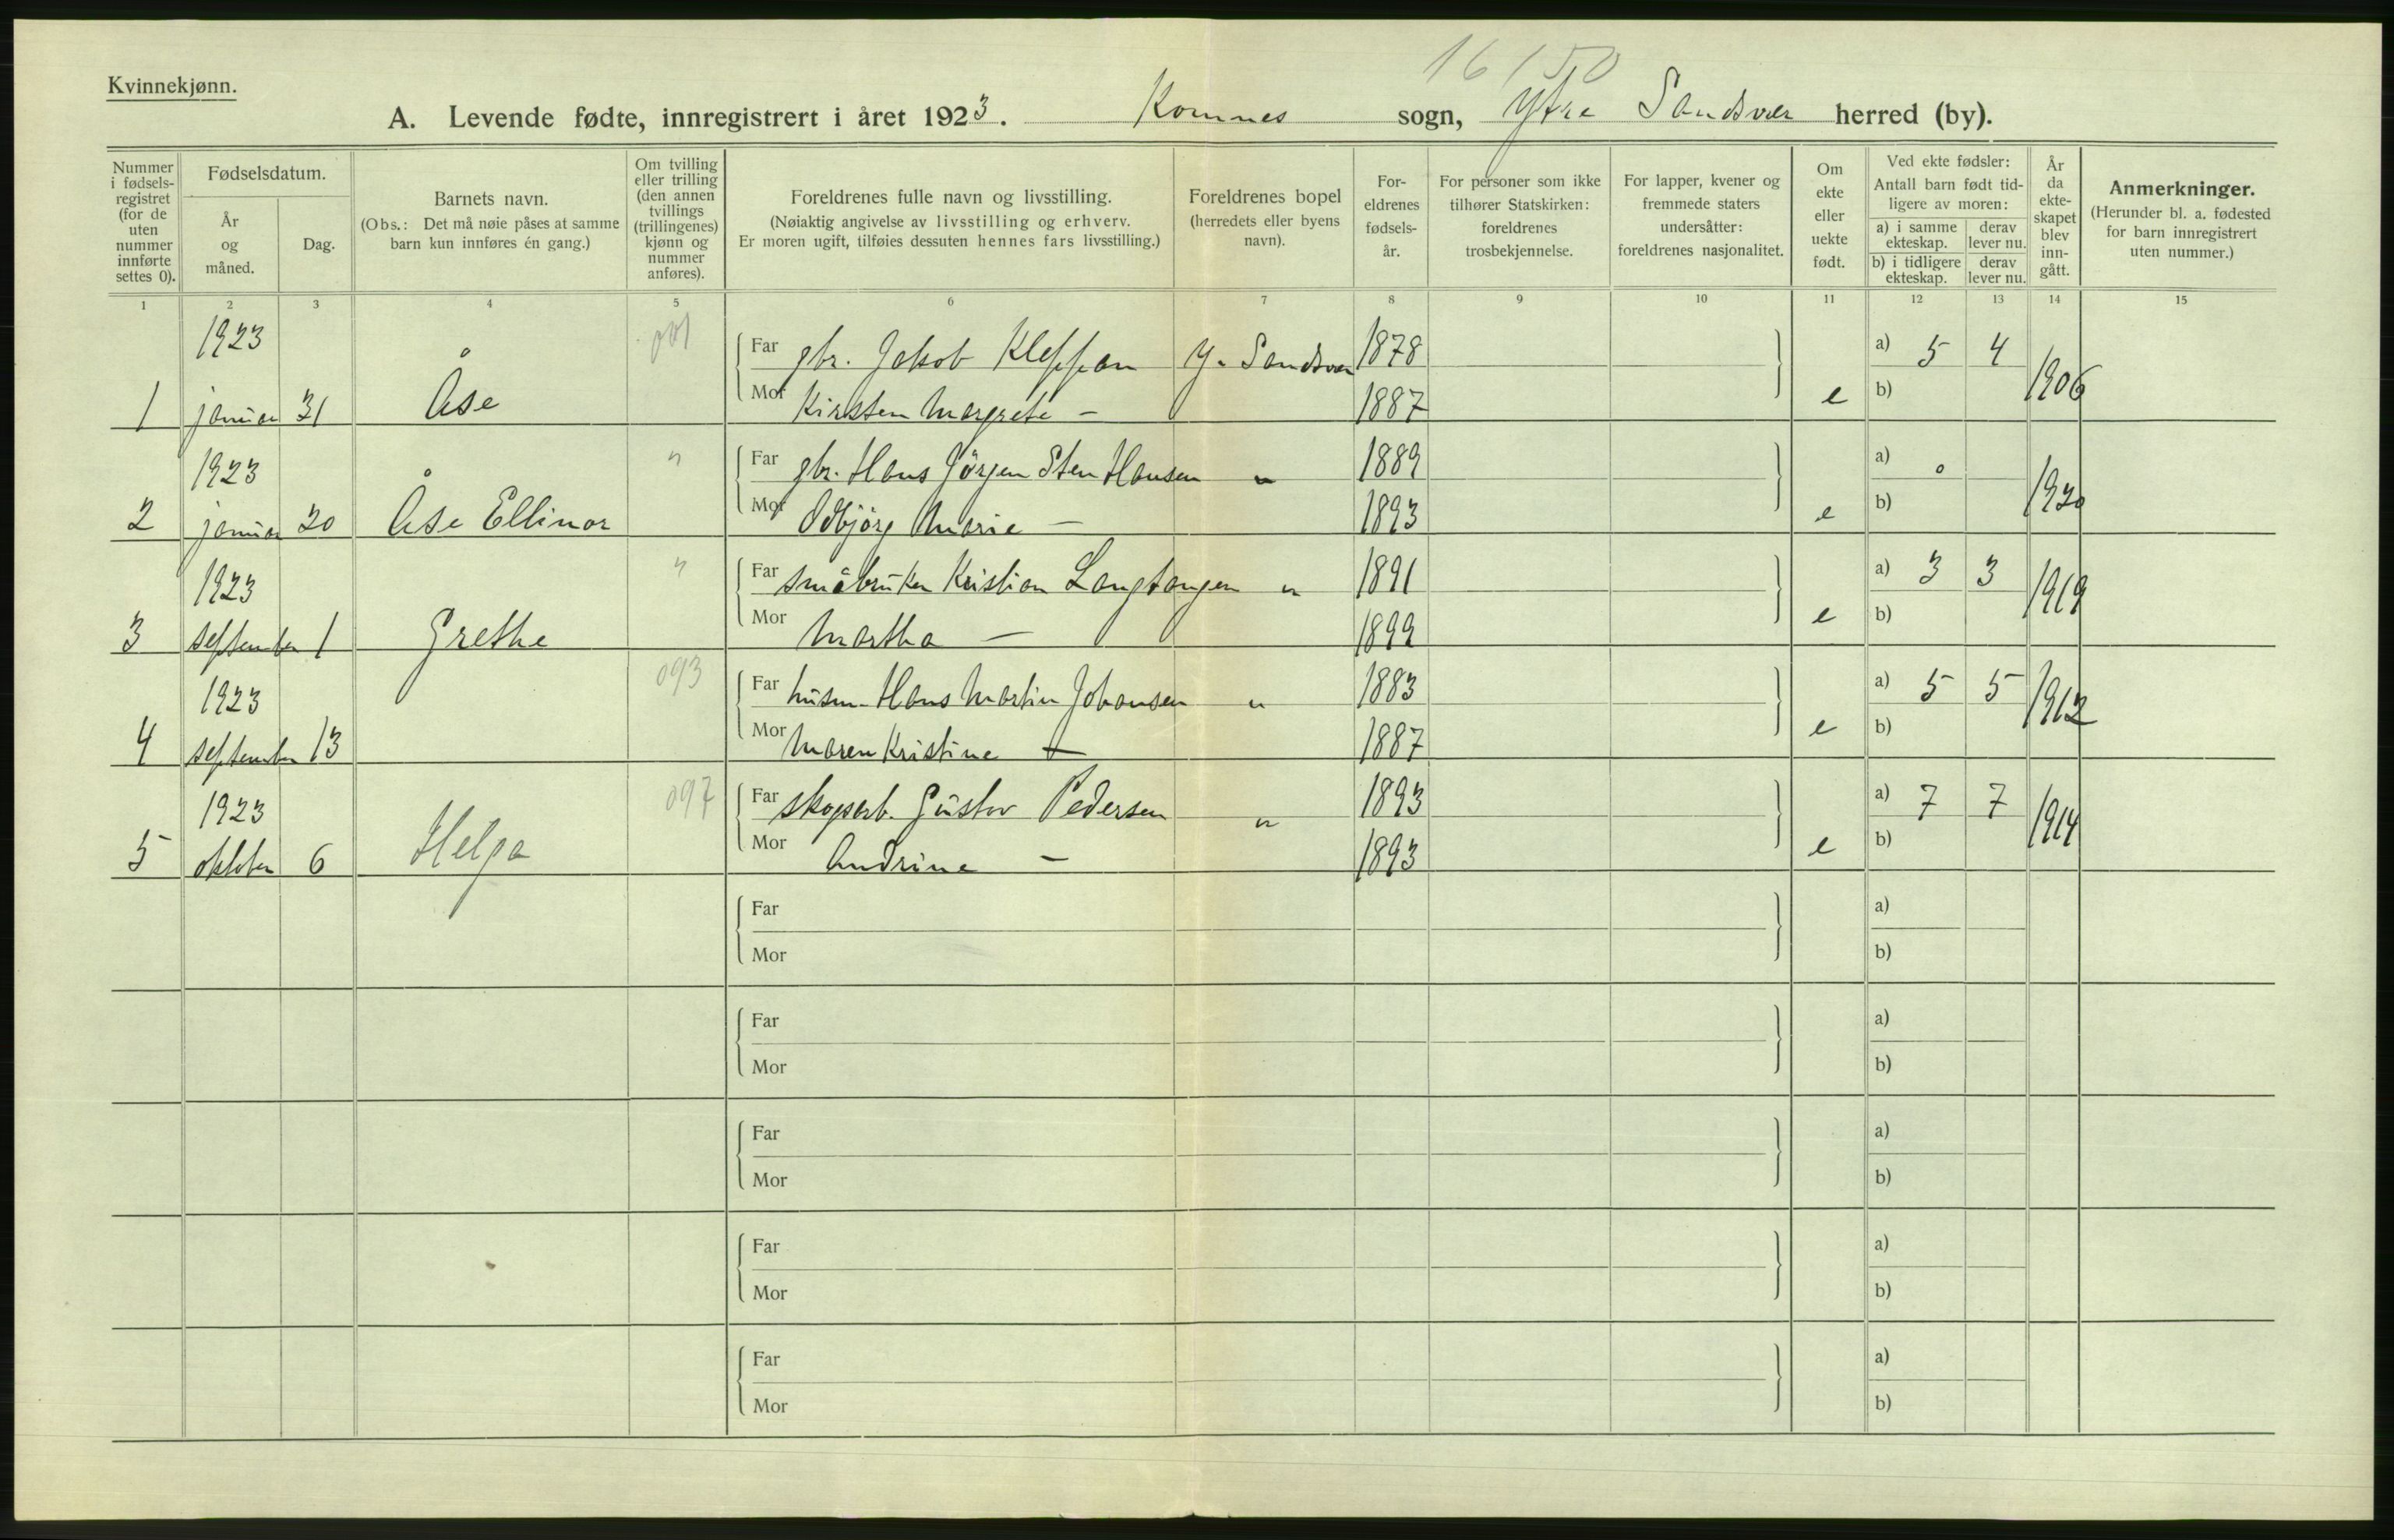 16/50
Kvinnekjønn.
A. Levende fødte, innregistrert i året 1923. Komnes sogn, Ytre Sandsvær herred (by).
Nummer i fødselsregistret (for de uten nummer innførte settes 0).
Fødselsdatum.
År og måned.
Dag.
Barnets navn.
(Obs.: Det må nøie påses at samme barn kun innføres én gang.)
Om tvilling eller trilling (den annen tvillings (trillingenes) kjønn og nummer anføres).
Foreldrenes fulle navn og livsstilling.
(Nøiaktig angivelse av livsstilling og erhverv.
Er moren ugift, tilføies dessuten hennes fars livsstilling.)
Foreldrenes bopel (herredets eller byens navn).
Foreldrenes fødselsår.
For personer som ikke tilhører Statskirken: foreldrenes trosbekjennelse.
For lapper, kvener og fremmede staters undersåtter: foreldrenes nasjonalitet.
Om ekte eller uekte født.
Ved ekte fødsler:
Antall barn født tidligere av moren:
a) i samme ekteskap. derav lever nu.
b) i tidligere ekteskap. derav lever nu.
År da ekteskapet blev inngått.
Anmerkninger.
(Herunder bl. a. fødested for barn innregistrert uten nummer.)
1 2 3 4 5 6 7 8 9 10 11 12 13 14 15
1923 001 Far gbr. Jakob Kleppan Y. Sandsvær 1878 a) 5 4
1 januar 31 Åse Mor Kirsten Margrete — 1887 e b) 1906
1923 " Far gbr. Hans Jörgen Sten Hansen " 1889 a) 0
2 januar 20 Åse Ellinor Mor Odbjörg Marie — 1893 e b) 1920
1923 " Far småbruker Kristian Langtangen " 1891 a) 3 3
3 september 1 Grethe Mor Martha — 1899 e b) 1919
1923 093 Far husm. Hans Martin Johansen " 1883 a) 5 5
4 september 13 Mor Maren Kristine — 1887 e b) 1912
1923 097 Far skogsarb. Gustav Pedersen " 1893 a) 7 7
5 oktober 6 Helga Mor Andrine — 1893 e b) 1914
Far a)
Mor b)
Far a)
Mor b)
Far a)
Mor b)
Far a)
Mor b)
Far a)
Mor b)